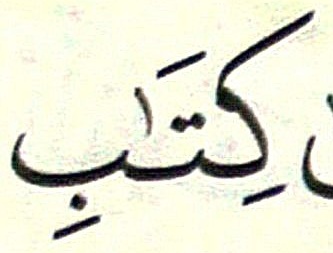 كِتَٰبِ